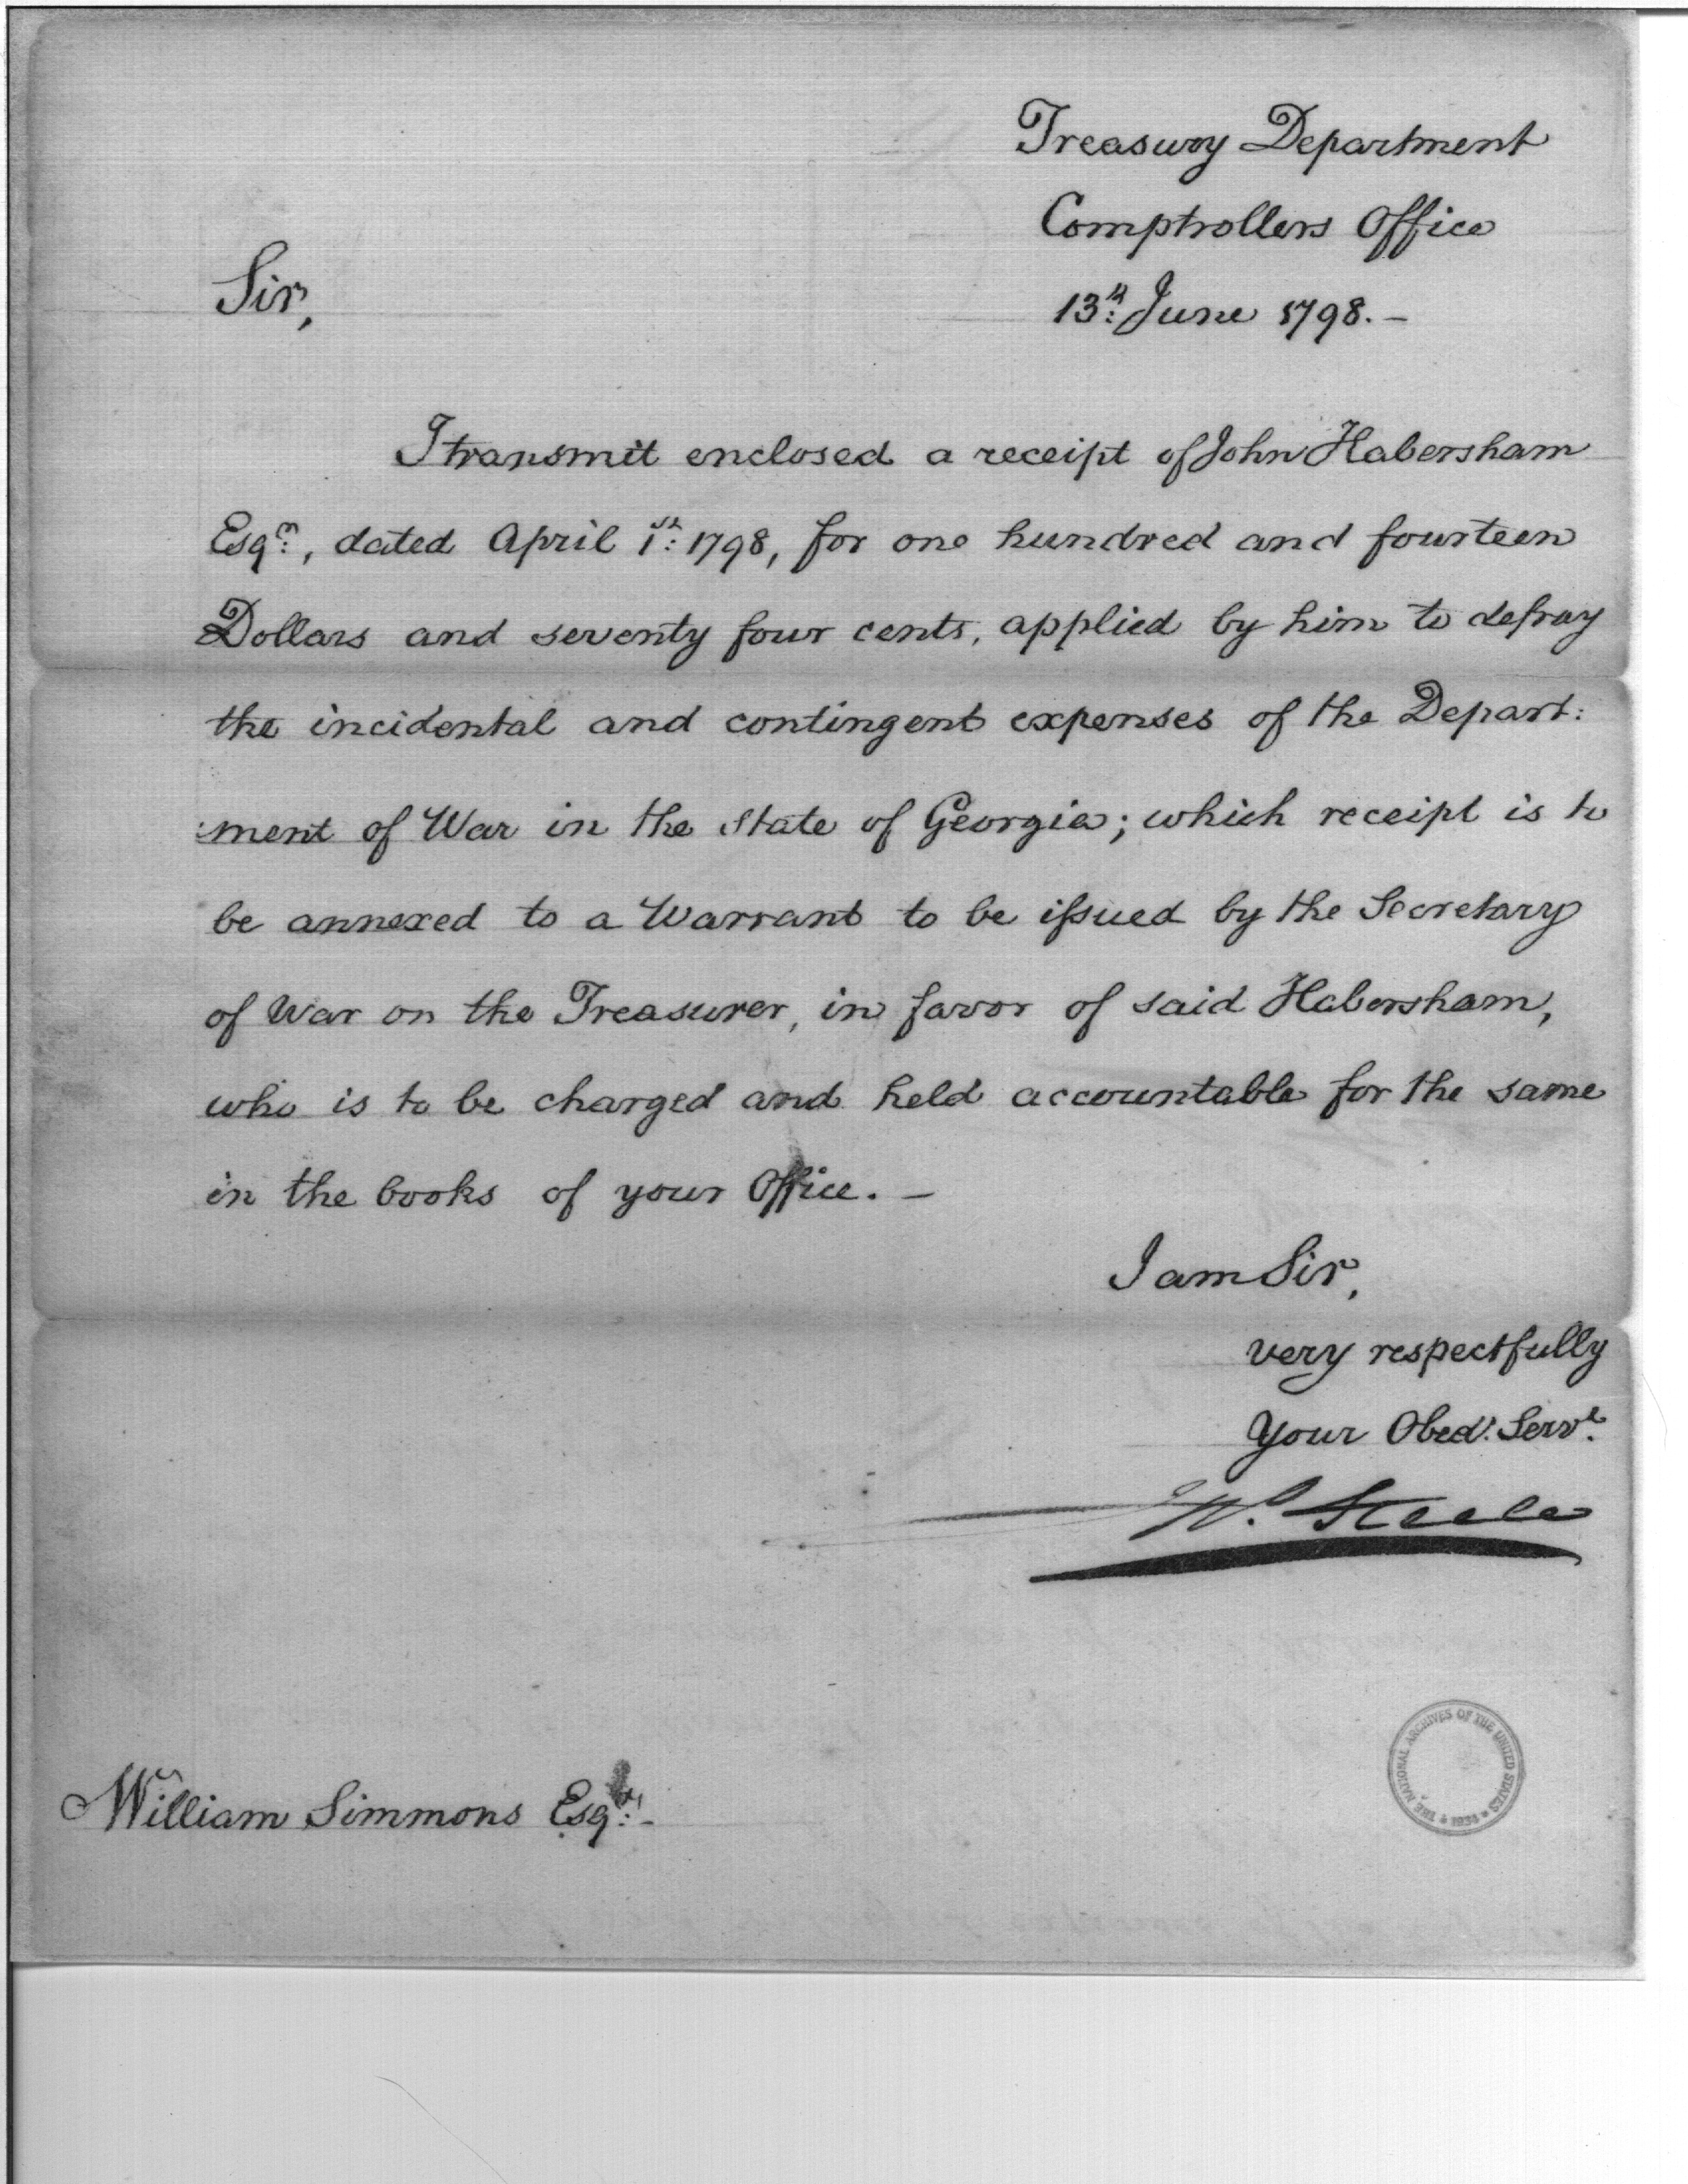 Treasury Department
Comptrollers Office
Sir,
13th: June 1798.-
I transmit enclosed a receipt of John Habersham
Esqr:, dated April 1st: 1798, for one hundred and fourteen
Dollars and seventy four cents, applied by him to defray
the incidental and contingent expenses of the Depart:
:ment of War in the State of Georgia; which receipt is to
be annexed to a Warrant to be issued by the Secretary
of War on the Treasurer, in favor of said Habersham,
who is to be charged and held accountable for the same
in the books of your Office. -
I am Sir,
very respectfully
Your Obed: Servt.
Jno. Steele
William Simmons Esqr: -
THE NATIONAL ARCHIVES OF THE UNITED STATES * 1934 *